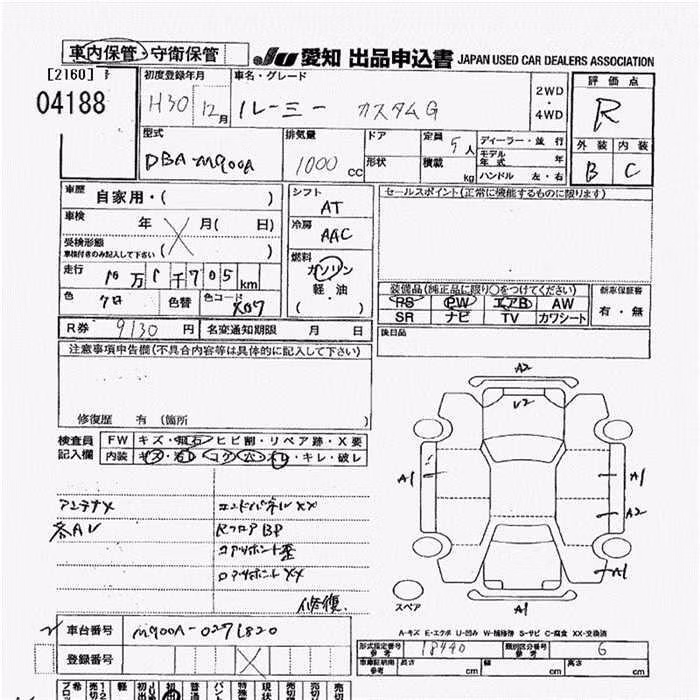 車内保管・守衛保管
JU 愛知 出品申込書 JAPAN USED CAR DEALERS ASSOCIATION
[2160]
04188
初度登録年月
H30 12月
車名・グレード
ルーミー カスタムG
2WD
・
4WD
評価点
R
外装 内装
B C
型式
DBA-M900A
排気量
1000 cc
ドア
形状
定員 5人
積載 kg
ディーラー・並行
モデル年式 年
ハンドル 左・右
車歴 自家用・( )
車検 年 月( 日)
受検形態
車検付きのみ記入して下さい ( )
走行 10万1千705km
色 クロ 色替 色コード X07
シフト
AT
冷房
AAC
燃料
ガソリン
軽・油
( )
セールスポイント(正常に機能するものに限ります)
装備品(純正品に限り○をつけてください)
PS PW エアB AW
SR ナビ TV カワシート
新車保証書
有・無
後日品
R券 9130円 名変通知期限 月 日
注意事項申告欄(不具合内容等は具体的に記入して下さい)
修復歴 有 (箇所 )
検査員
記入欄
FW キズ・飛石・ヒビ割・リペア跡・X要
内装 キズ・汚レ・コゲ・穴・スレ・キレ・破レ
アンテナX
各AU
エンドパネルXX
RフロアBP
コアサポート歪
ロアサポートXX
修復
A2
V2
A1
A1
A2
A1
A1
スペア
A-キズ E-エクボ U-凹み W-補修跡 S-サビ C-腐食 XX-交換済
車台番号 M900A-0271820
登録番号
形式指定番号 参考 18440
類別区分番号 参考 6
車庫証明用 参考 長さ cm 幅 cm 高さ cm